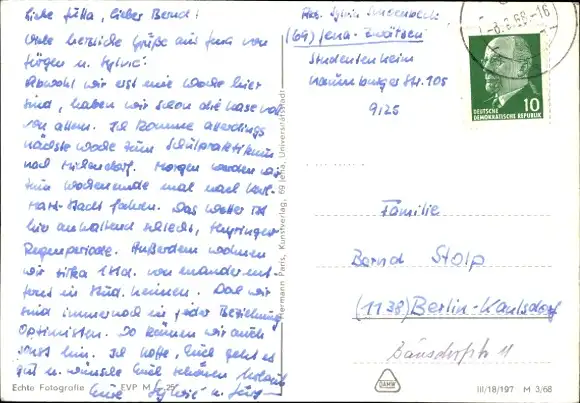 Liebe Jutta, lieber Bernd!
Viele herzliche Grüße aus Jena von
Jürgen u. Sylvia.
Obwohl wir erst eine Woche hier
sind, haben wir schon die Nase voll
von allem. Ich komme allerdings
nächste Woche zum Schulpraktikum
nach. Morgen werden wir
zum Wochenende mal nach Karl-
Marx-Stadt fahren. Das Wetter ist
hier anhaltend schlecht, Thüringer
Regenperiode. Außerdem wohnen
wir zirka 1 Std. von einander ent-
fernt in Stud. heimen. Da wir
sind immer noch in jeder Beziehung
Optimisten. So können wir auch
sonst hin. Ich hoffe, Euch geht es
gut u. wünsche Euch schönen Urlaub
Eure Sylvia u. Jürg
Echte Fotografie EVP M -,25
Hermann Paris, Kunstverlag, 69 Jena, Universitätsstadt
Abs. Sylvia
(69) Jena-Zwätzen
Studentenheim
Naumburger Str. 105
9/25
-8.8.68-16
DEUTSCHE
DEMOKRATISCHE REPUBLIK
10
Familie
Bernd Stolp
(1138) Berlin-Kaulsdorf
Bansdorfstr. 11
DAMW
III/18/197 M 3/68